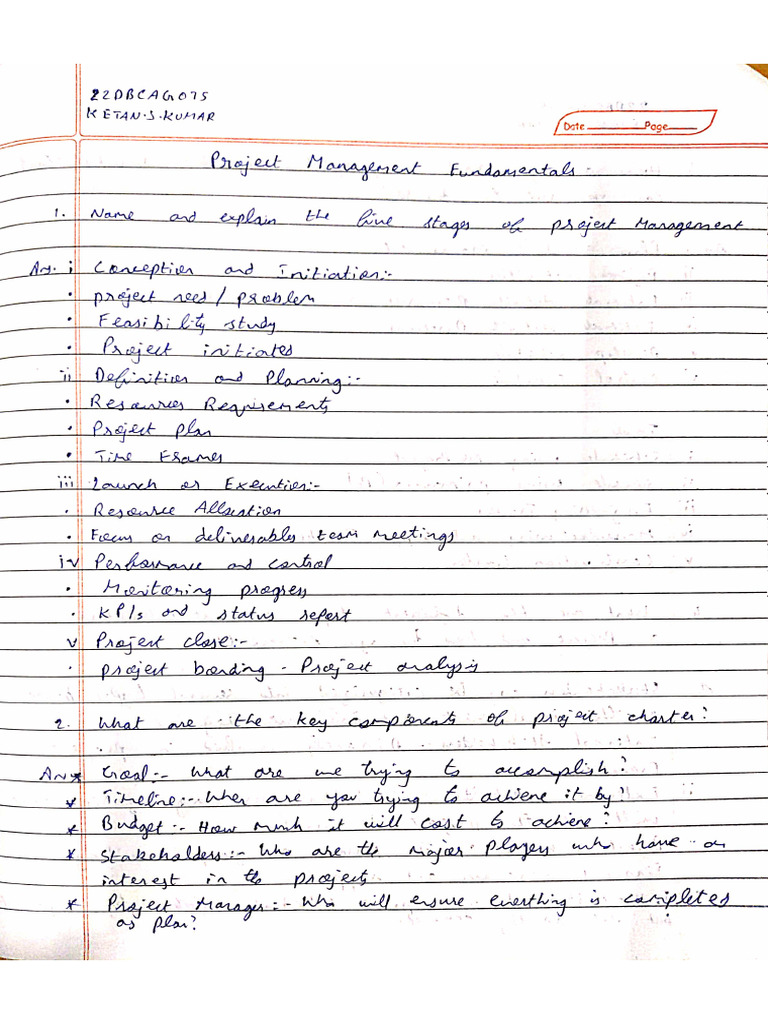 22DBCAG075
KETAN.S.KUMAR
Date Page
Project Management Fundamentals
1. Name and explain the five stages of project Management
Ans. i Conception and Initiation:-
• project need / problem
• Feasibility study
• Project initiates
ii Definition and Planning:-
• Resources Requirements
• Project plan
• Time Frames
iii Launch or Execution:-
• Resource Allocation
• Focus on deliverables team meetings
iv Performance and control
• Monitoring progress
• KPIs and status report
v Project close:-
• project - Project analysis
2. What are the key components of project charter?
Ans * Goal:- What are we trying to accomplish?
* Timeline:- When are you trying to achieve it by?
* Budget:- How much it will cost to achieve?
* Stakeholders:- Who are the major players who have an
interest in the projects
* Project Manager:- Who will ensure everthing is completes
as plan?